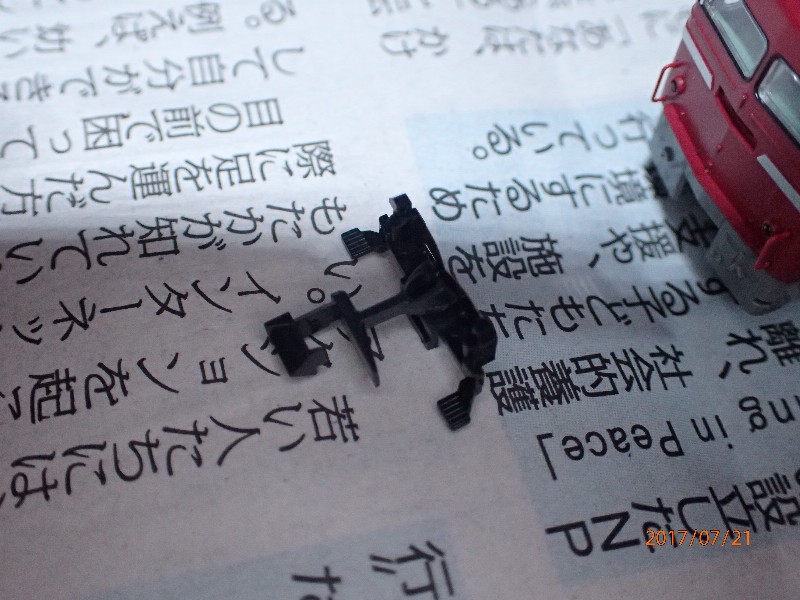 設立したNP
ing in Peace」
離れ、社会的養護
する子どもたち
支援や、施設を
境にするため
行っている。
に「あなたは、かけ
行
た
若い人たちには、
ションを起こ
い。インターネッ
もたが知れてい
際に足を運んだ方
目の前で困って
して自分ができる
る。例えば、幼い
2017/07/21